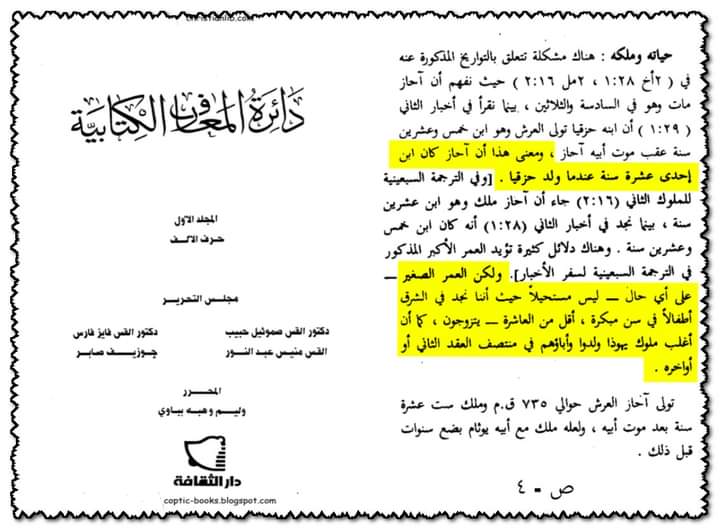 christianlib.com
دائرة المعارف الكتابية
المجلد الأول
حرف الألف
مجلس التحرير
دكتور القس صموئيل حبيب
دكتور القس فايز فارس
القس منيس عبد النور
جوزيف صابر
المحرر
وليم وهبه بباوي
دار الثقافة
coptic-books.blogspot.com
حياته وملكه : هناك مشكلة تتعلق بالتواريخ المذكورة عنه
في ( ٢أخ ١:٢٨ ، ٢مل ٢:١٦ ) حيث نفهم أن آحاز
مات وهو في السادسة والثلاثين ، بينما نقرأ في أخبار الثاني
( ١:٢٩ ) أن ابنه حزقيا تولى العرش وهو ابن خمس وعشرين
سنة عقب موت أبيه آحاز ، ومعنى هذا أن آحاز كان ابن
إحدى عشرة سنة عندما ولد حزقيا . [وفي الترجمة السبعينية
للملوك الثاني (٢:١٦) جاء أن آحاز ملك وهو ابن عشرين
سنة ، بينما نجد في أخبار الثاني (١:٢٨) أنه كان ابن خمس
وعشرين سنة . وهناك دلائل كثيرة تؤيد العمر الأكبر المذكور
في الترجمة السبعينية لسفر الأخبار]. ولكن العمر الصغير —
على أي حال — ليس مستحيلاً حيث أننا نجد في الشرق
أطفالاً في سن مبكرة ، أقل من العاشرة — يتزوجون ، كما أن
أغلب ملوك يهوذا ولدوا وأباؤهم في منتصف العقد الثاني أو
أواخره .
تولى آحاز العرش حوالي ٧٣٥ ق.م وملك ست عشرة
سنة بعد موت أبيه ، ولعله ملك مع أبيه يوثام بضع سنوات
قبل ذلك .
ص - ٤